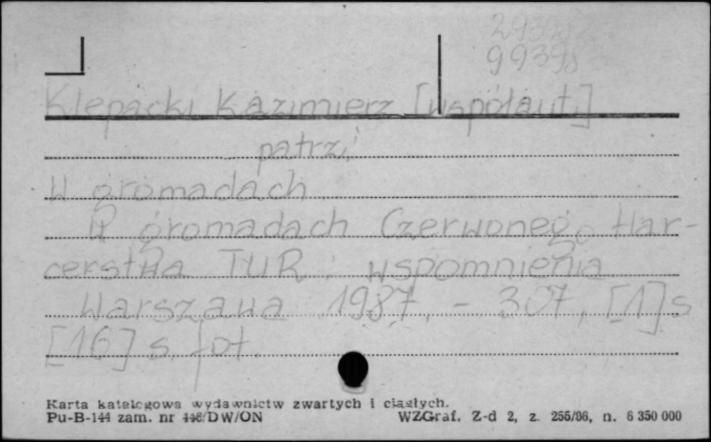 9939s
Klepacki Kazimierz [współaut.]
patrz:
W gromadach
W gromadach Czerwonego Har-
cerstwa TUR : wspomnienia
Warszawa 1987. - 307, [1] s
[16] s. fot.
Karta katalogowa wydawnictw zwartych i ciągłych.
Pu-B-144 zam. nr 448/DW/ON WZGraf. Z-d 2, z. 255/86, n. 6 350 000